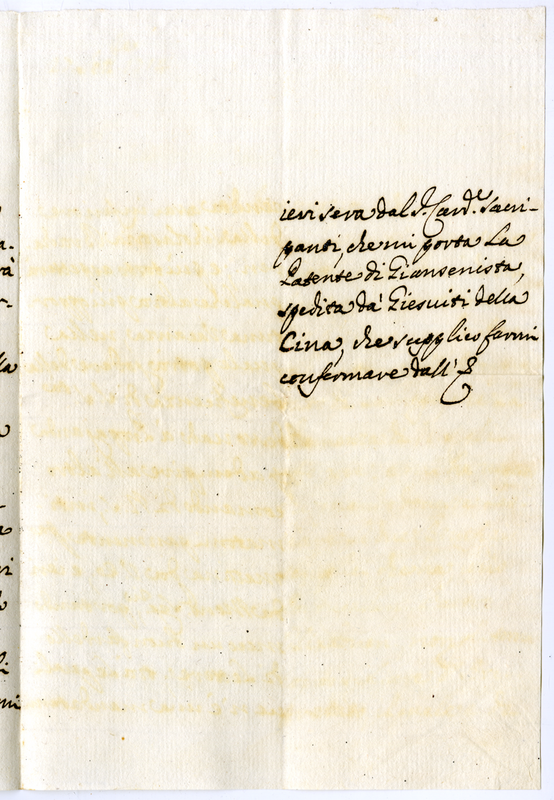 ieri sera dal S. Card.e Sacri-
panti, che mi porta La
Patente di Giansenista,
spedita da' Giesuiti della
Cina, che supplico farmi
confermare dall'